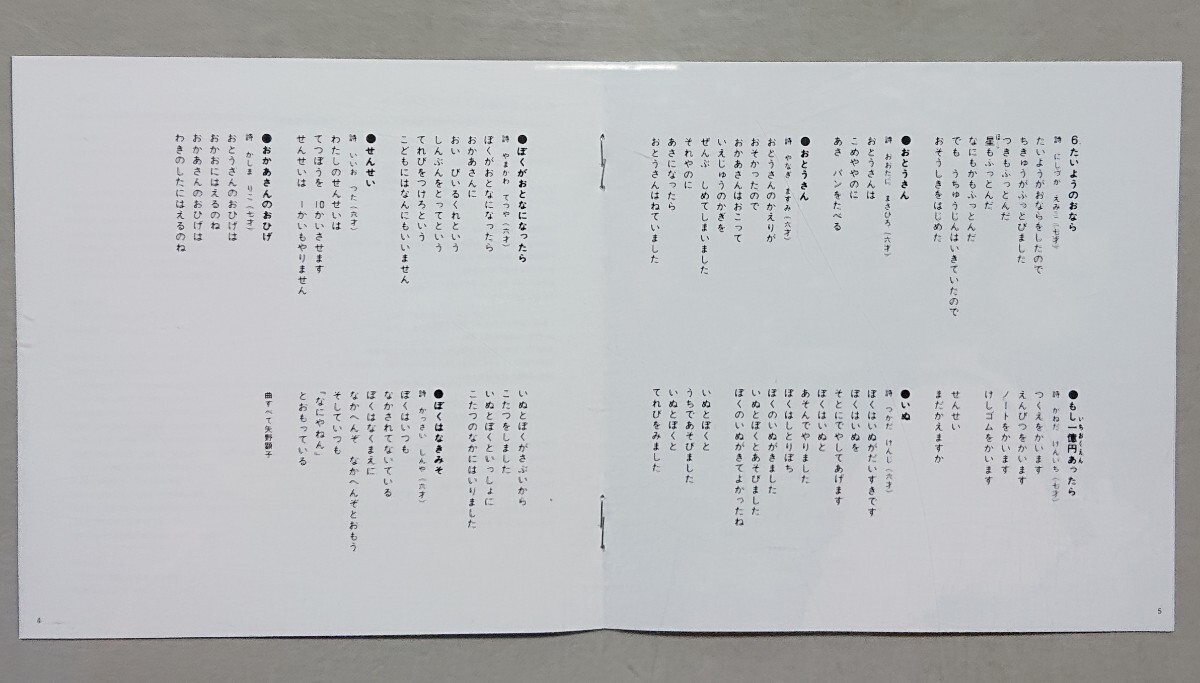 6.たいようのおなら
詩 にしづか えみこ(七才)
たいようがおならをしたので
ちきゅうがふっとびました
つきもふっとんだ
ほし
星もふっとんだ
なにもかもふっとんだ
でも うちゅうじんはいきていたので
おそうしきをはじめた
●おとうさん
詩 おおたに まさひろ(六才)
おとうさんは
こめややのに
あさ パンをたべる
●おとうさん
詩 やなぎ ますみ(六才)
おとうさんのかえりが
おそかったので
おかあさんはおこって
いえじゅうのかぎを
ぜんぶ しめてしまいました
それやのに
あさになったら
おとうさんはねていました
●ぼくがおとなになったら
詩 やまかわ てつや(六才)
ぼくがおとなになったら
おかあさんに
おい びいるくれという
しんぶんをとってという
てれびをつけろという
こどもにはなんにもいいません
●せんせい
詩 いいお つた(六才)
わたしのせんせいは
てつぼうを 10かいさせます
せんせいは 1かいもやりません
●おかあさんのおひげ
詩 かしま りこ(七才)
おとうさんのおひげは
おかおにはえるのね
おかあさんのおひげは
わきのしたにはえるのね
いちおくえん
●もし一億円あったら
詩 かねだ けんいち(七才)
つくえをかいます
えんぴつをかいます
ノートをかいます
けしゴムをかいます
せんせい
まだかえますか
●いぬ
詩 つかだ けんじ(六才)
ぼくはいぬがだいすきです
ぼくはいぬを
そとにでやしてあげます
ぼくはいぬと
あそんでやりました
ぼくはしとりぼち
ぼくのいぬがきました
いぬとぼくとあそびました
ぼくのいぬがきてよかったね
いぬとぼくと
うちであそびました
いぬとぼくと
てれびをみました
いぬとぼくがさぶいから
こたつをしました
いぬとぼくといっしょに
こたつのなかにはいりました
●ぼくはなきみそ
詩 かっさい しんや(六才)
ぼくはいつも
なかされてないている
ぼくはなくまえに
なかへんぞ なかへんぞとおもう
そしていつも
「なにやねん」
とおもっている
曲すべて矢野顕子
4
5